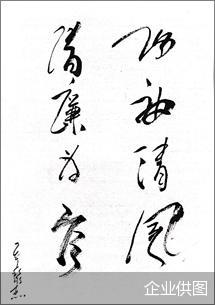 两袖清风
清廉为官
企业供图